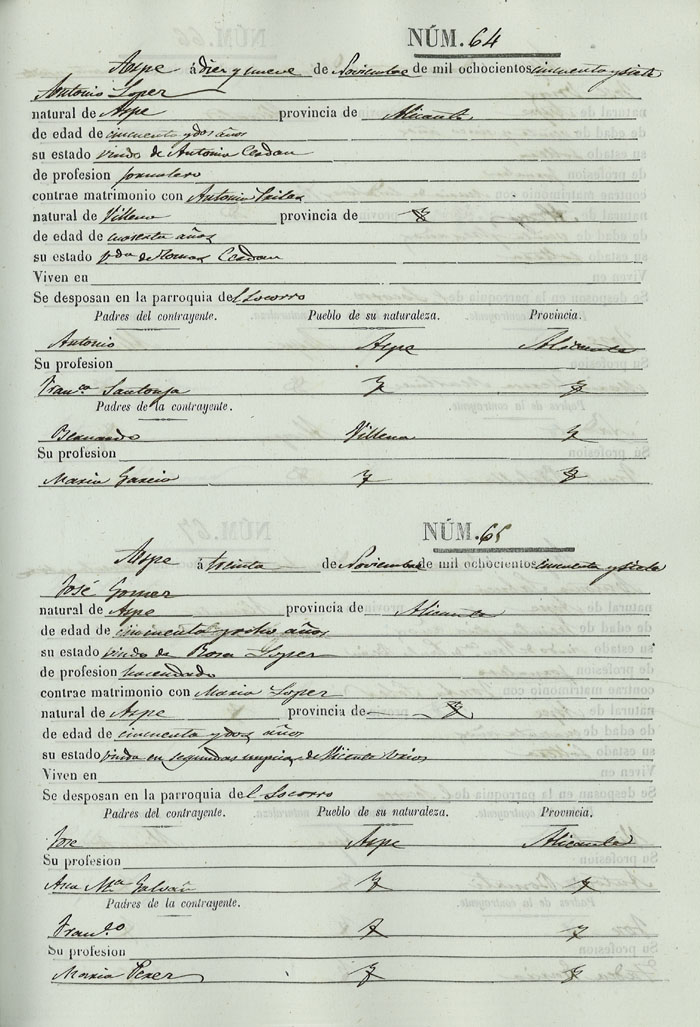 NÚM. 64
Aspe á diez y nueve de Noviembre de mil ochocientos cincuenta y siete
Antonio Lopez
natural de Aspe provincia de Alicante
de edad de cincuenta y dos años
su estado viudo de Antonia Cerdan
de profesion jornalero
contrae matrimonio con Antonia
natural de Villena provincia de
de edad de cuarenta años
su estado Vda de Tomas Cerdan
Viven en
Se desposan en la parroquia del Socorro
Padres del contrayente. Pueblo de su naturaleza. Provincia.
Antonio Aspe Alicante
Su profesion
Franca Santonja
Padres de la contrayente.
Bernardo Villena
Su profesion
Maria Garcia
NÚM. 65
Aspe á treinta de Noviembre de mil ochocientos cincuenta y siete
José Gomez
natural de Aspe provincia de Alicante
de edad de cincuenta y ocho años
su estado viudo de Rosa Lopez
de profesion hacendado
contrae matrimonio con Maria Lopez
natural de Aspe provincia de
de edad de cincuenta y dos años
su estado viuda en segundas nupcias de Vicente
Viven en
Se desposan en la parroquia del Socorro
Padres del contrayente. Pueblo de su naturaleza. Provincia.
Jose Aspe Alicante
Su profesion
Ana Ma Galvañ
Padres de la contrayente.
Franco
Su profesion
Maria Perez